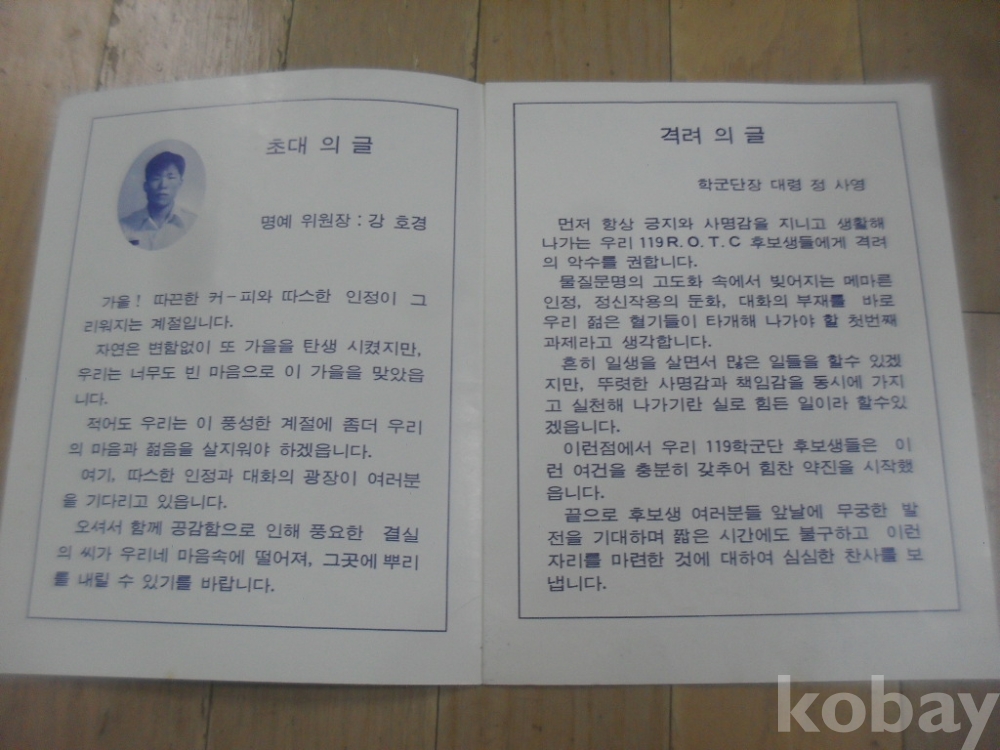 초대 의 글
명예 위원장 : 강 호경
가을! 따끈한 커-피와 따스한 인정이 그
리워지는 계절입니다.
자연은 변함없이 또 가을을 탄생 시켰지만,
우리는 너무도 빈 마음으로 이 가을을 맞았읍
니다.
적어도 우리는 이 풍성한 계절에 좀더 우리
의 마음과 젊음을 살지워야 하겠읍니다.
여기, 따스한 인정과 대화의 광장이 여러분
을 기다리고 있읍니다.
오셔서 함께 공감함으로 인해 풍요한 결실
의 씨가 우리네 마음속에 떨어져, 그곳에 뿌리
를 내릴 수 있기를 바랍니다.
격려 의 글
학군단장 대령 정 사영
먼저 항상 긍지와 사명감을 지니고 생활해
나가는 우리 119R.O.T.C 후보생들에게 격려
의 악수를 권합니다.
물질문명의 고도화 속에서 빚어지는 메마른
인정, 정신작용의 둔화, 대화의 부재를 바로
우리 젊은 혈기들이 타개해 나가야 할 첫번째
과제라고 생각합니다.
흔히 일생을 살면서 많은 일들을 할수 있겠
지만, 뚜렷한 사명감과 책임감을 동시에 가지
고 실천해 나가기란 실로 힘든 일이라 할수있
겠읍니다.
이런점에서 우리 119학군단 후보생들은 이
런 여건을 충분히 갖추어 힘찬 약진을 시작했
읍니다.
끝으로 후보생 여러분들 앞날에 무궁한 발
전을 기대하며 짧은 시간에도 불구하고 이런
자리를 마련한 것에 대하여 심심한 찬사를 보
냅니다.
kobay